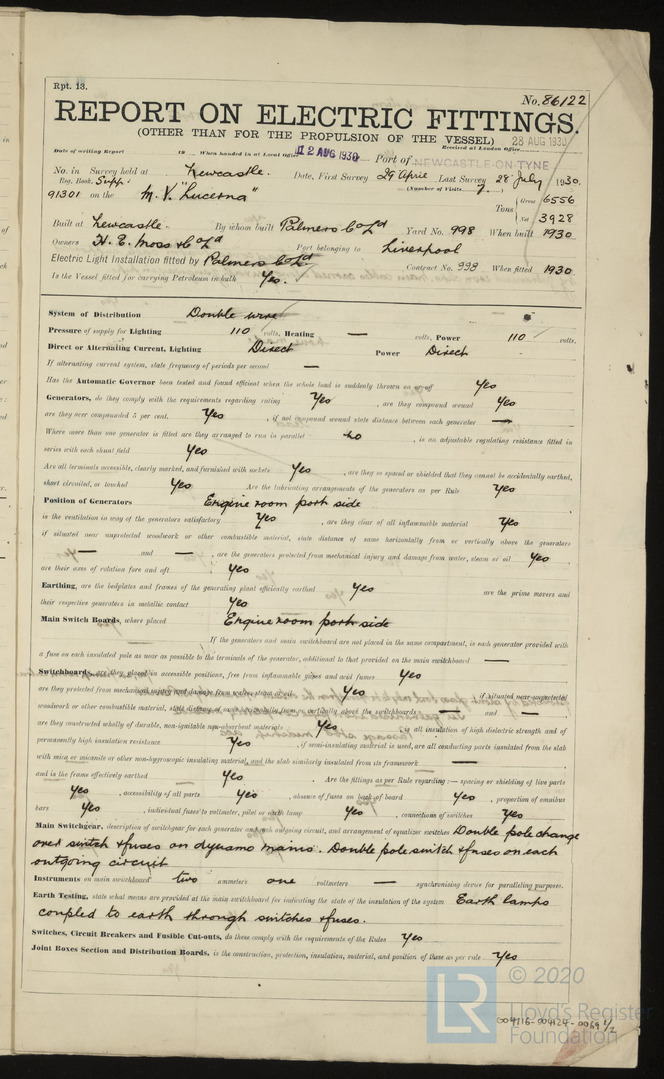 Rpt. 13.
No. 86122
REPORT ON ELECTRIC FITTINGS.
(OTHER THAN FOR THE PROPULSION OF THE VESSEL)
28 AUG 1930
Date of writing Report 19 When handed in at Local Office 12 AUG 1930 Port of NEWCASTLE-ON-TYNE Received at London Office
No. in Survey held at Newcastle. Date, First Survey 29 April Last Survey 28 July 1930.
Reg. Book. Supp. (Number of Visits 7.)
91301 on the M.V. "Lucerna" Tons { Gross 6556
Net 3928
Built at Newcastle. By whom built Palmers Co Ld Yard No. 998 When built 1930
Owners H. E. Moss & Co Ld Port belonging to Liverpool
Electric Light Installation fitted by Palmers Co Ld Contract No. 998 When fitted 1930
Is the Vessel fitted for carrying Petroleum in bulk Yes.
System of Distribution Double wire
Pressure of supply for Lighting 110 volts, Heating — volts, Power 110 volts.
Direct or Alternating Current, Lighting Direct Power Direct
If alternating current system, state frequency of periods per second —
Has the Automatic Governor been tested and found efficient when the whole load is suddenly thrown on or off Yes
Generators, do they comply with the requirements regarding rating Yes, are they compound wound Yes
are they over compounded 5 per cent. Yes, if not compound wound state distance between each generator —
Where more than one generator is fitted are they arranged to run in parallel No, is an adjustable regulating resistance fitted in
series with each shunt field Yes
Are all terminals accessible, clearly marked, and furnished with sockets Yes, are they so spaced or shielded that they cannot be accidentally earthed,
short circuited, or touched Yes Are the lubricating arrangements of the generators as per Rule Yes
Position of Generators Engine room port side
is the ventilation in way of the generators satisfactory Yes, are they clear of all inflammable material Yes
if situated near unprotected woodwork or other combustible material, state distance of same horizontally from or vertically above the generators
— and —, are the generators protected from mechanical injury and damage from water, steam or oil Yes,
are their axes of rotation fore and aft Yes
Earthing, are the bedplates and frames of the generating plant efficiently earthed Yes are the prime movers and
their respective generators in metallic contact Yes
Main Switch Boards, where placed Engine room port side
If the generators and main switchboard are not placed in the same compartment, is each generator provided with
a fuse on each insulated pole as near as possible to the terminals of the generator, additional to that provided on the main switchboard —
Switchboards, are they placed in accessible positions, free from inflammable gases and acid fumes Yes
are they protected from mechanical injury and damage from water, steam or oil Yes, if situated near unprotected
woodwork or other combustible material, state distance of same horizontally from or vertically above the switchboards — and —
are they constructed wholly of durable, non-ignitable non-absorbent materials Yes, is all insulation of high dielectric strength and of
permanently high insulation resistance Yes, if semi-insulating material is used, are all conducting parts insulated from the slab
with mica or micanite or other non-hygroscopic insulating material, and the slab similarly insulated from its framework —,
and is the frame effectively earthed Yes. Are the fittings as per Rule regarding :— spacing or shielding of live parts
Yes, accessibility of all parts Yes, absence of fuses on back of board Yes, proportion of omnibus
bars Yes, individual fuses to voltmeter, pilot or earth lamp Yes, connections of switches Yes
Main Switchgear, description of switchgear for each generator and each outgoing circuit, and arrangement of equalizer switches Double pole change
over switch & fuses on dynamo mains. Double pole switch & fuses on each
outgoing circuit
Instruments on main switchboard two ammeters one voltmeters — synchronising device for paralleling purposes.
Earth Testing, state what means are provided at the main switchboard for indicating the state of the insulation of the system Earth lamps
coupled to earth through switches & fuses.
Switches, Circuit Breakers and Fusible Cut-outs, do these comply with the requirements of the Rules Yes
Joint Boxes Section and Distribution Boards, is the construction, protection, insulation, material, and position of these as per rule Yes
© 2020
LR Lloyd's Register
Foundation
004116-004124-0069 1/2